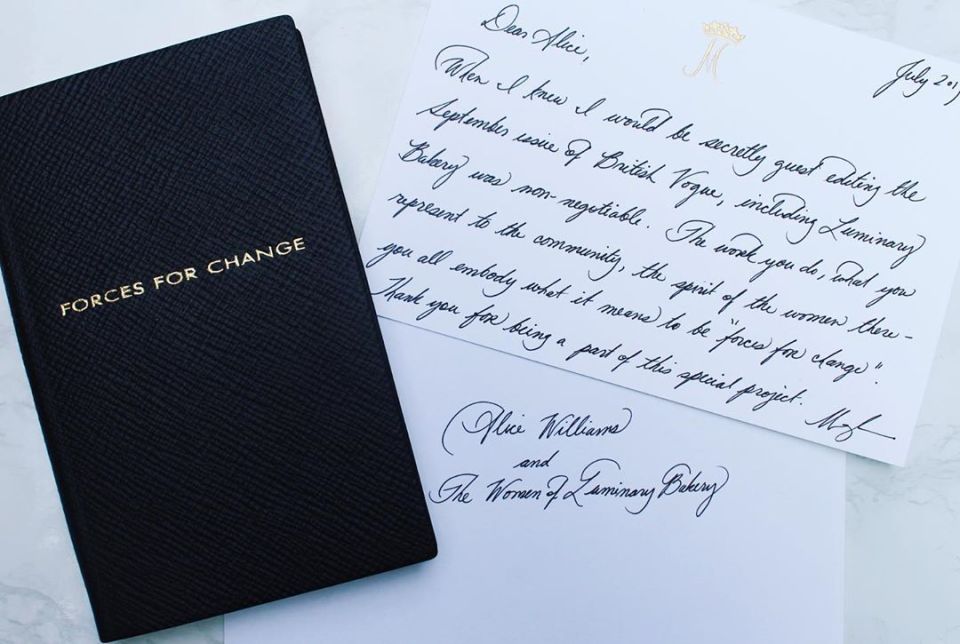 FORCES FOR CHANGE
M
July 201
Dear Alice,
When I knew I would be secretly guest editing the
September issue of British Vogue, including Luminary
Bakery was non-negotiable. The work you do, what you
represent to the community, the spirit of the women there -
you all embody what it means to be "forces for change".
Thank you for being a part of this special project.
Alice Williams
and
The Women of Luminary Bakery